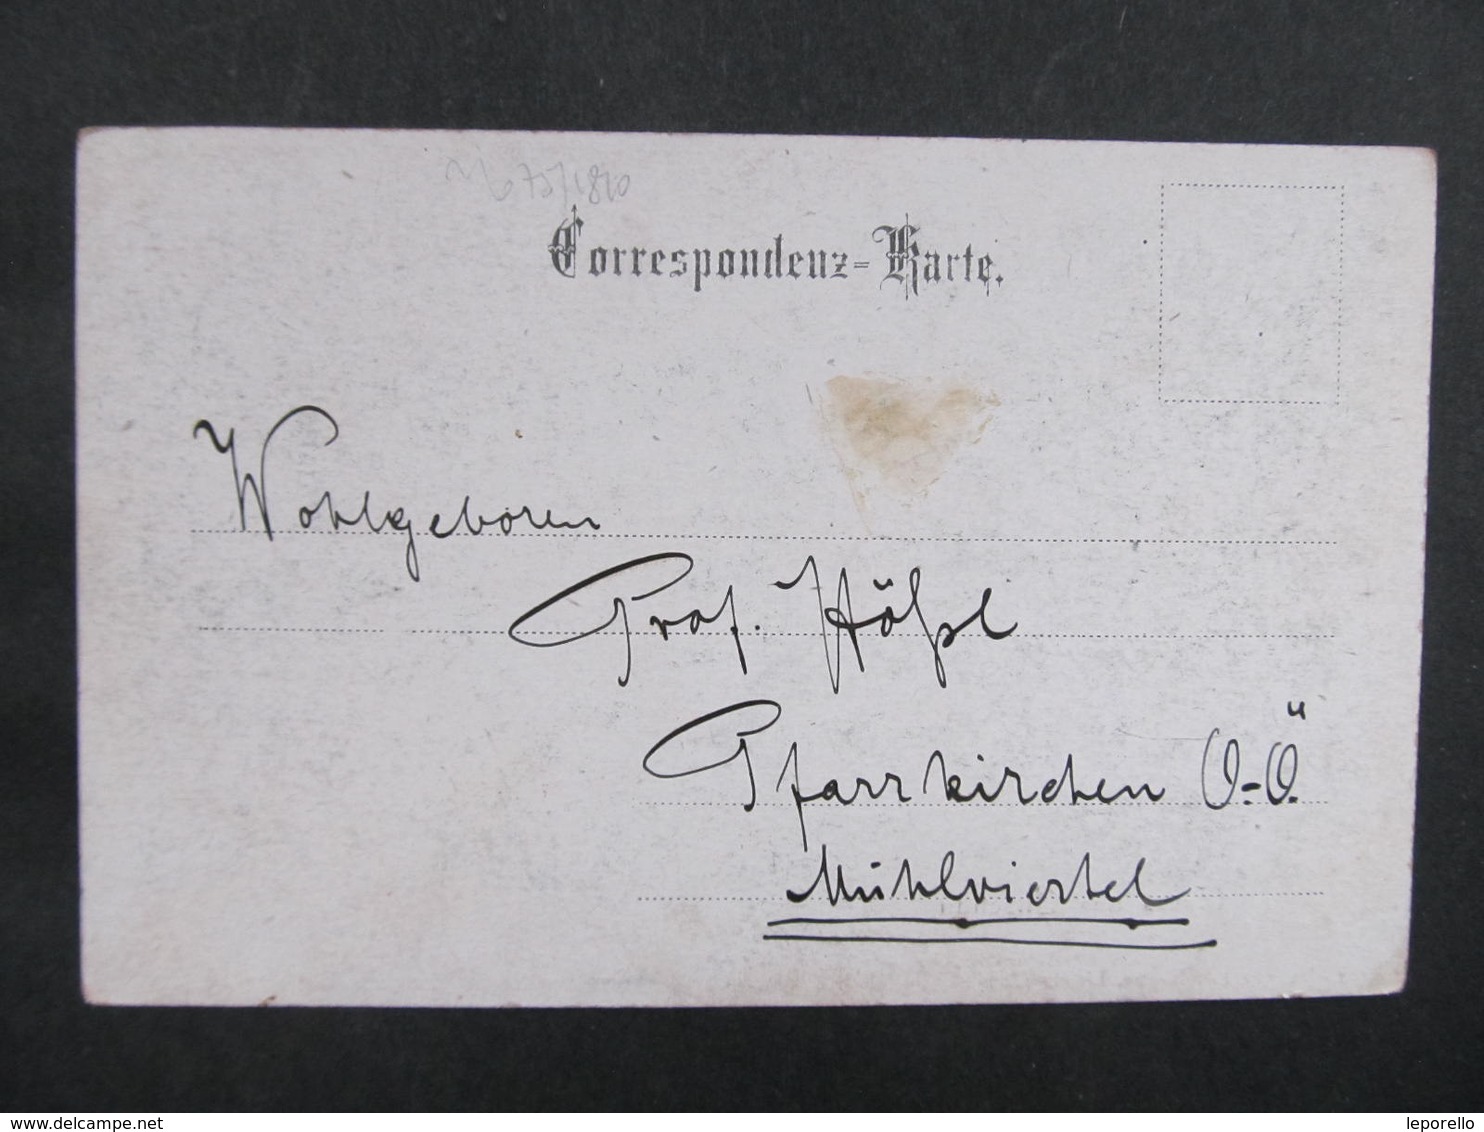 Correspondenz-Karte.
Wohlgeboren
Prof. Hößl
Pfarrkirchen O.-Ö.
Mühlviertel
www.delcampe.net
leporello